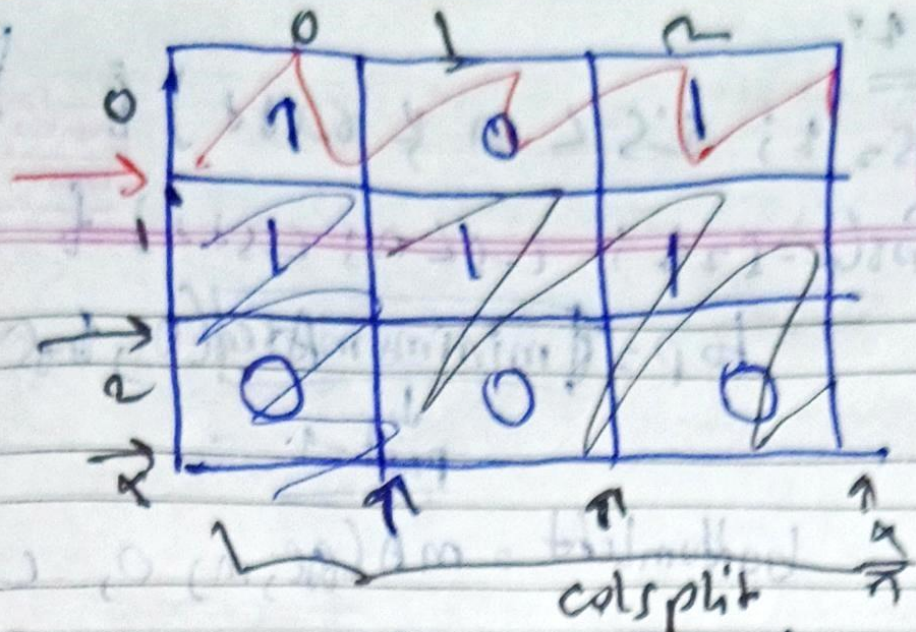 0 1 2
0 1 0 1
1 1 1 1
2 0 0 0
colsplit